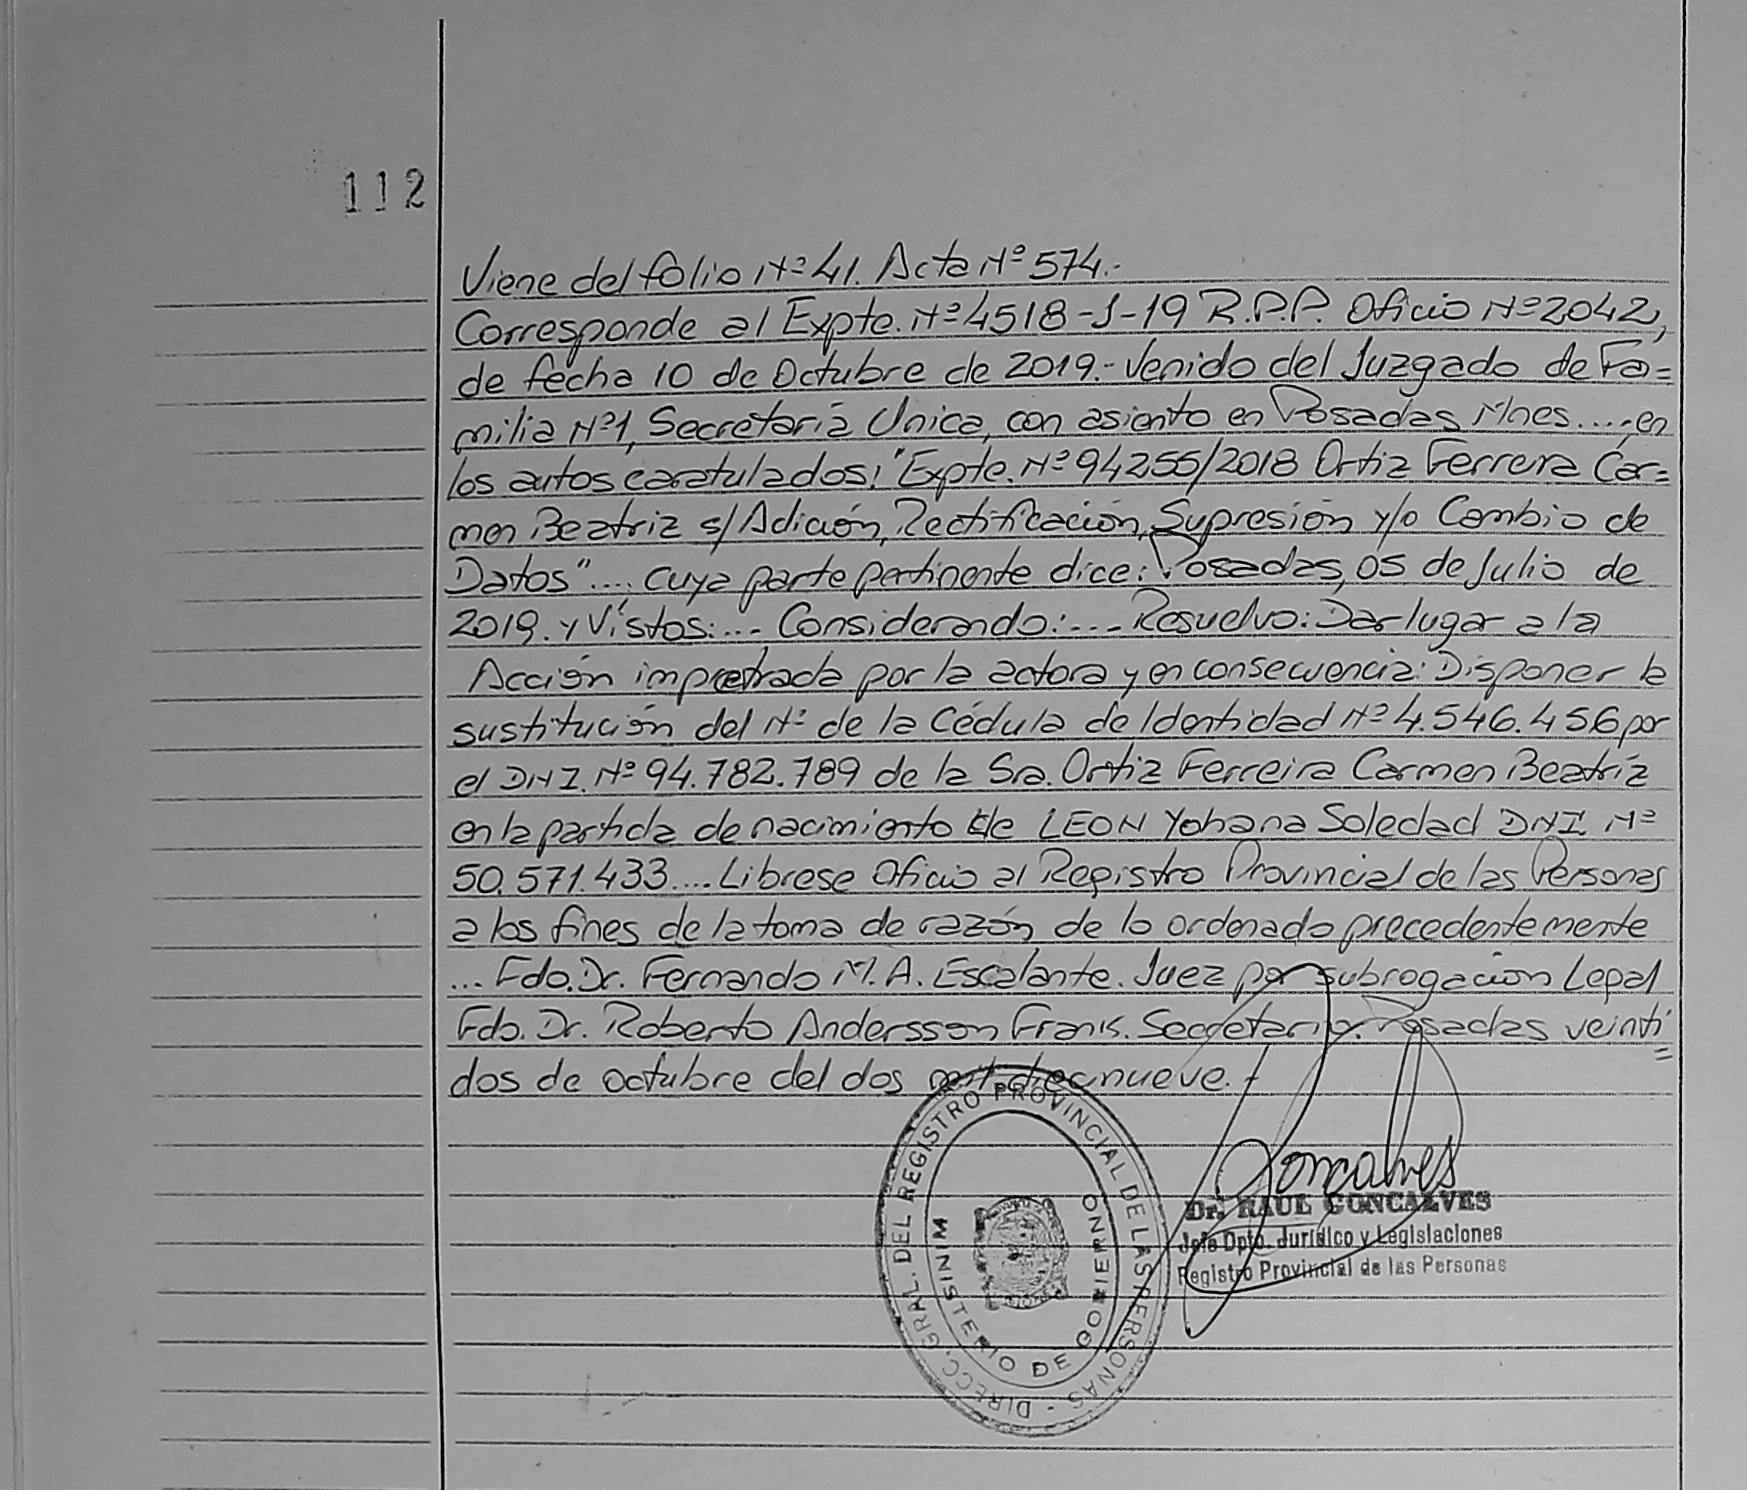 112
Viene del folio Nº 41. Acta Nº 574.-
Corresponde al Expte. Nº 4518-J-19 R.P.P. Oficio Nº 2042,
de fecha 10 de Octubre de 2019.- Venido del Juzgado de Fa=
milia Nº1, Secretaría Unica, con asiento en Posadas Mnes....., en
los autos caratulados: "Expte. Nº 94255/2018 Ortiz Ferrera Car=
men Beatriz s/Adición, Rectificación, Supresión y/o Cambio de
Datos".... cuya parte pertinente dice: Posadas, 05 de Julio de
2019. y Vistos:... Considerando:.... Resuelvo: Dar lugar a la
Acción impretrada por la actora y en consecuencia: Disponer la
sustitución del Nº de la Cédula de Identidad Nº 4.546.456 por
el DNI. Nº 94.782.789 de la Sra. Ortiz Ferreira Carmen Beatríz
en la partida de nacimiento de LEON Yohana Soledad DNI. Nº
50.571.433.... Librese Oficio al Registro Provincial de las Personas
a los fines de la toma de razón de lo ordenado precedentemente
... Fdo. Dr. Fernando M. A. Escalante. Juez por subrogación Legal
Fdo. Dr. Roberto Andersson Frank. Secretario. Posadas veinti=
dos de octubre del dos mil diecinueve.-
DIRECC. GRAL. DEL REGISTRO PROVINCIAL DE LAS PERSONAS -
MINISTERIO DE GOBIERNO
Goncalves
Dr. RAUL GONCALVES
Jefe Dpto. Jurídico y Legislaciones
Registro Provincial de las Personas